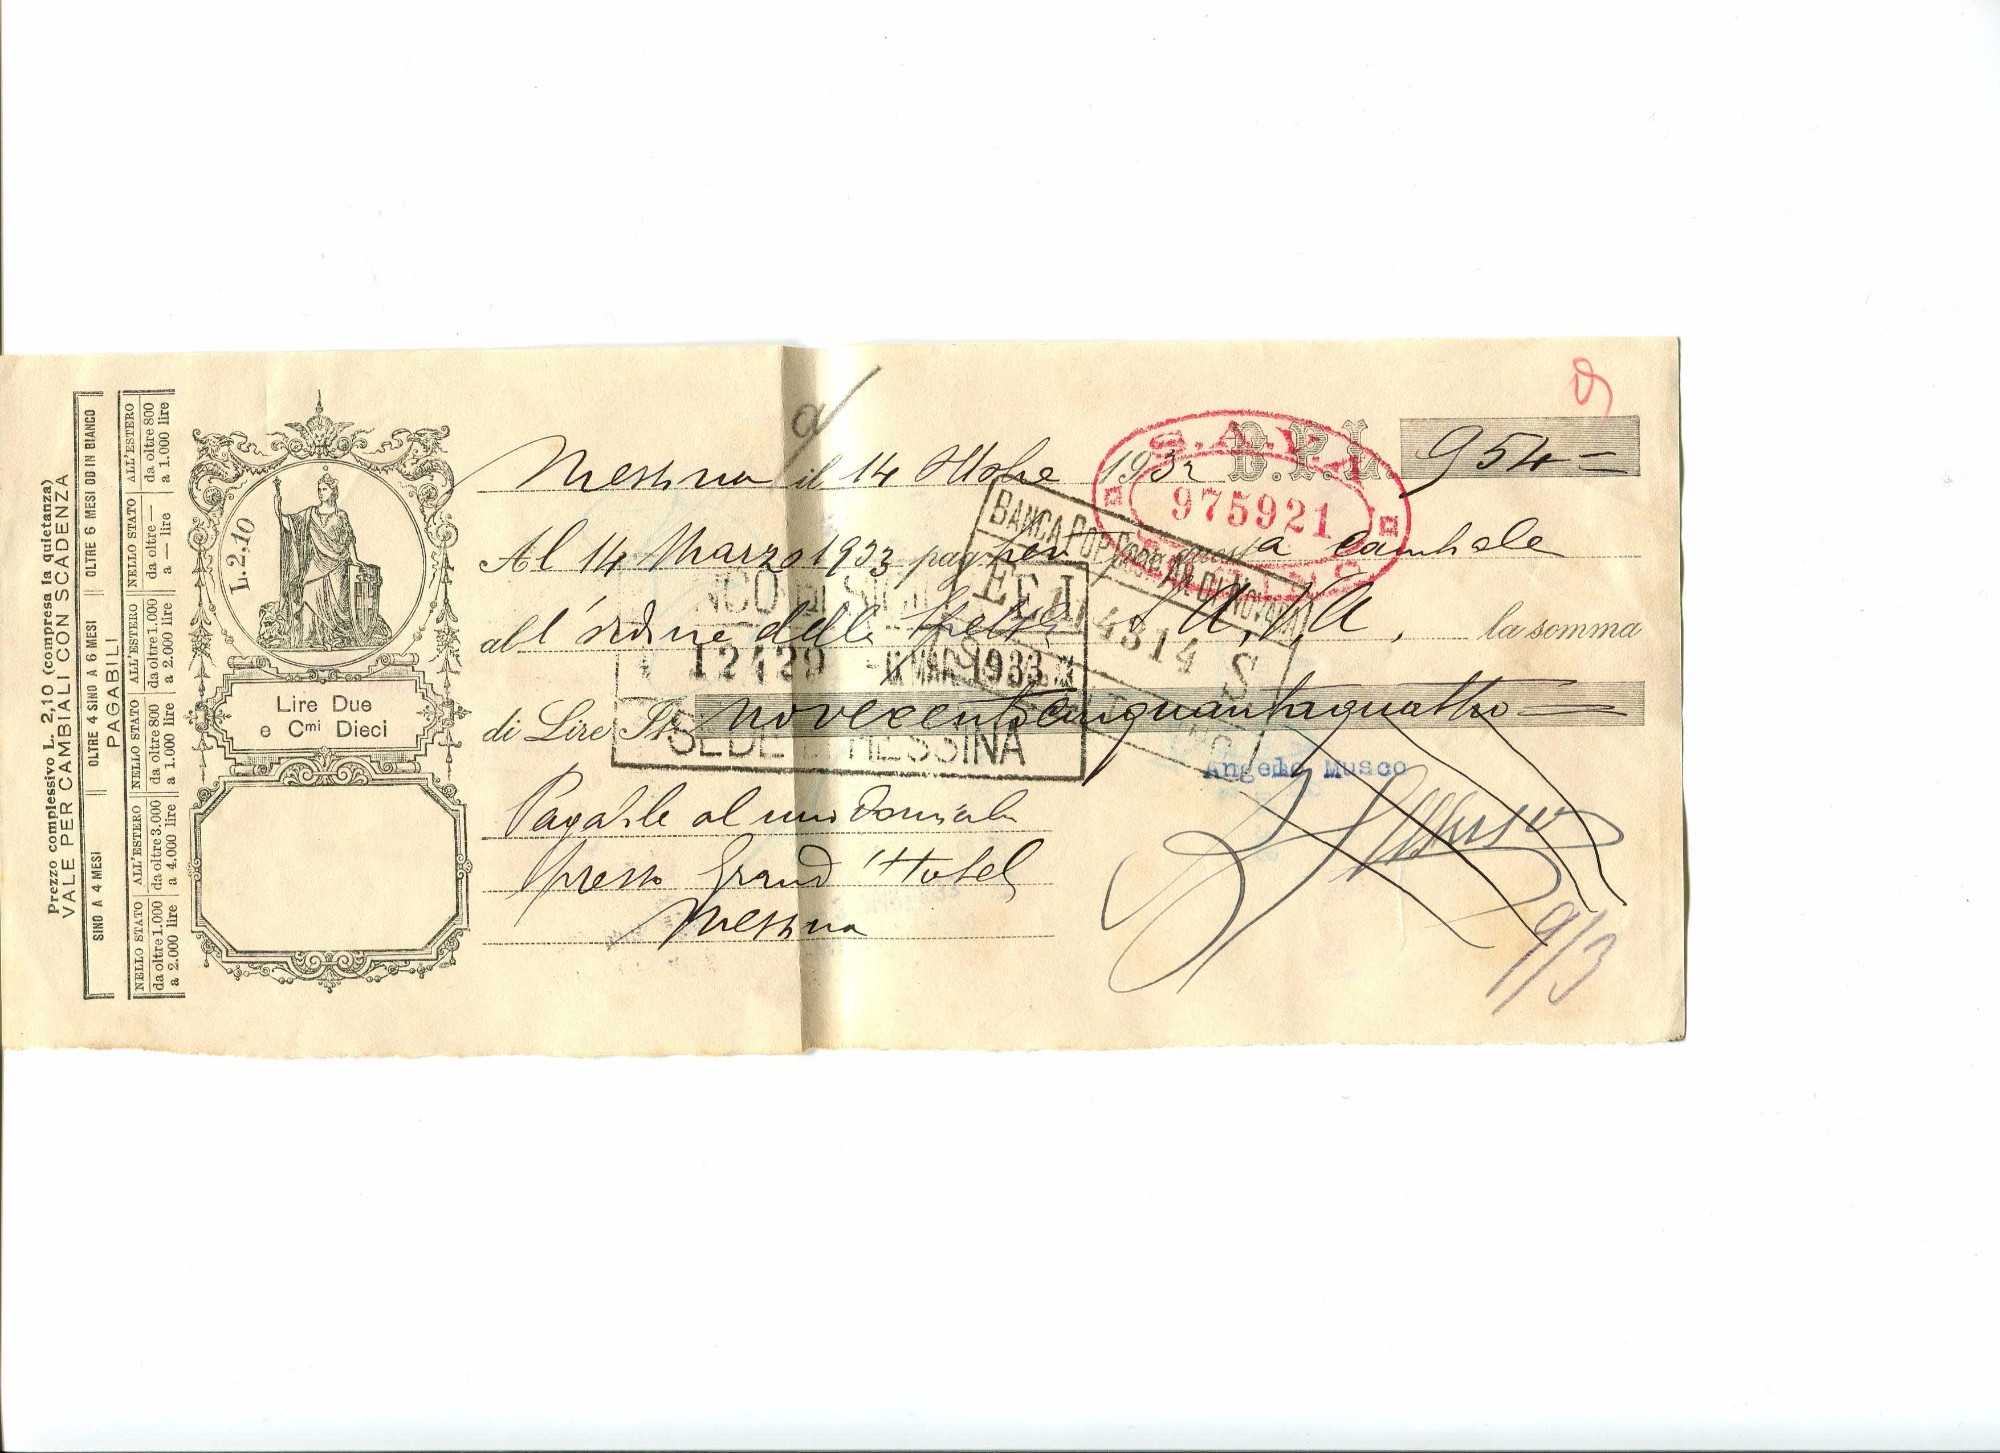 Prezzo complessivo L. 2,10 (compresa la quietanza)
VALE PER CAMBIALI CON SCADENZA
SINO A 4 MESI
OLTRE 4 SINO A 6 MESI
OLTRE 6 MESI OD IN BIANCO
PAGABILI
NELLO STATO
da oltre 1.000
a 2.000 lire
ALL'ESTERO
da oltre 3.000
a 4.000 lire
NELLO STATO
da oltre 800
a 1.000 lire
ALL'ESTERO
da oltre 1.000
a 2.000 lire
NELLO STATO
da oltre —
a — lire
ALL'ESTERO
da oltre 800
a 1.000 lire
L. 2,10
Lire Due
e Cmi Dieci
Messina il 14 Ottobre 1932 B.P.L. 954=
S.A.V.A.
975921
Al 14 Marzo 1933 pag per questa cambiale
BANCA POP DI NOVARA
all'ordine della S.A.V.A. la somma
4314
12429 MAR. 1933
di Lire novecentocinquantaquattro
SEDE MESSINA
Angelo Musco
Pagabile al mio domicilio
presso Grand Hotel
Messina
9/3